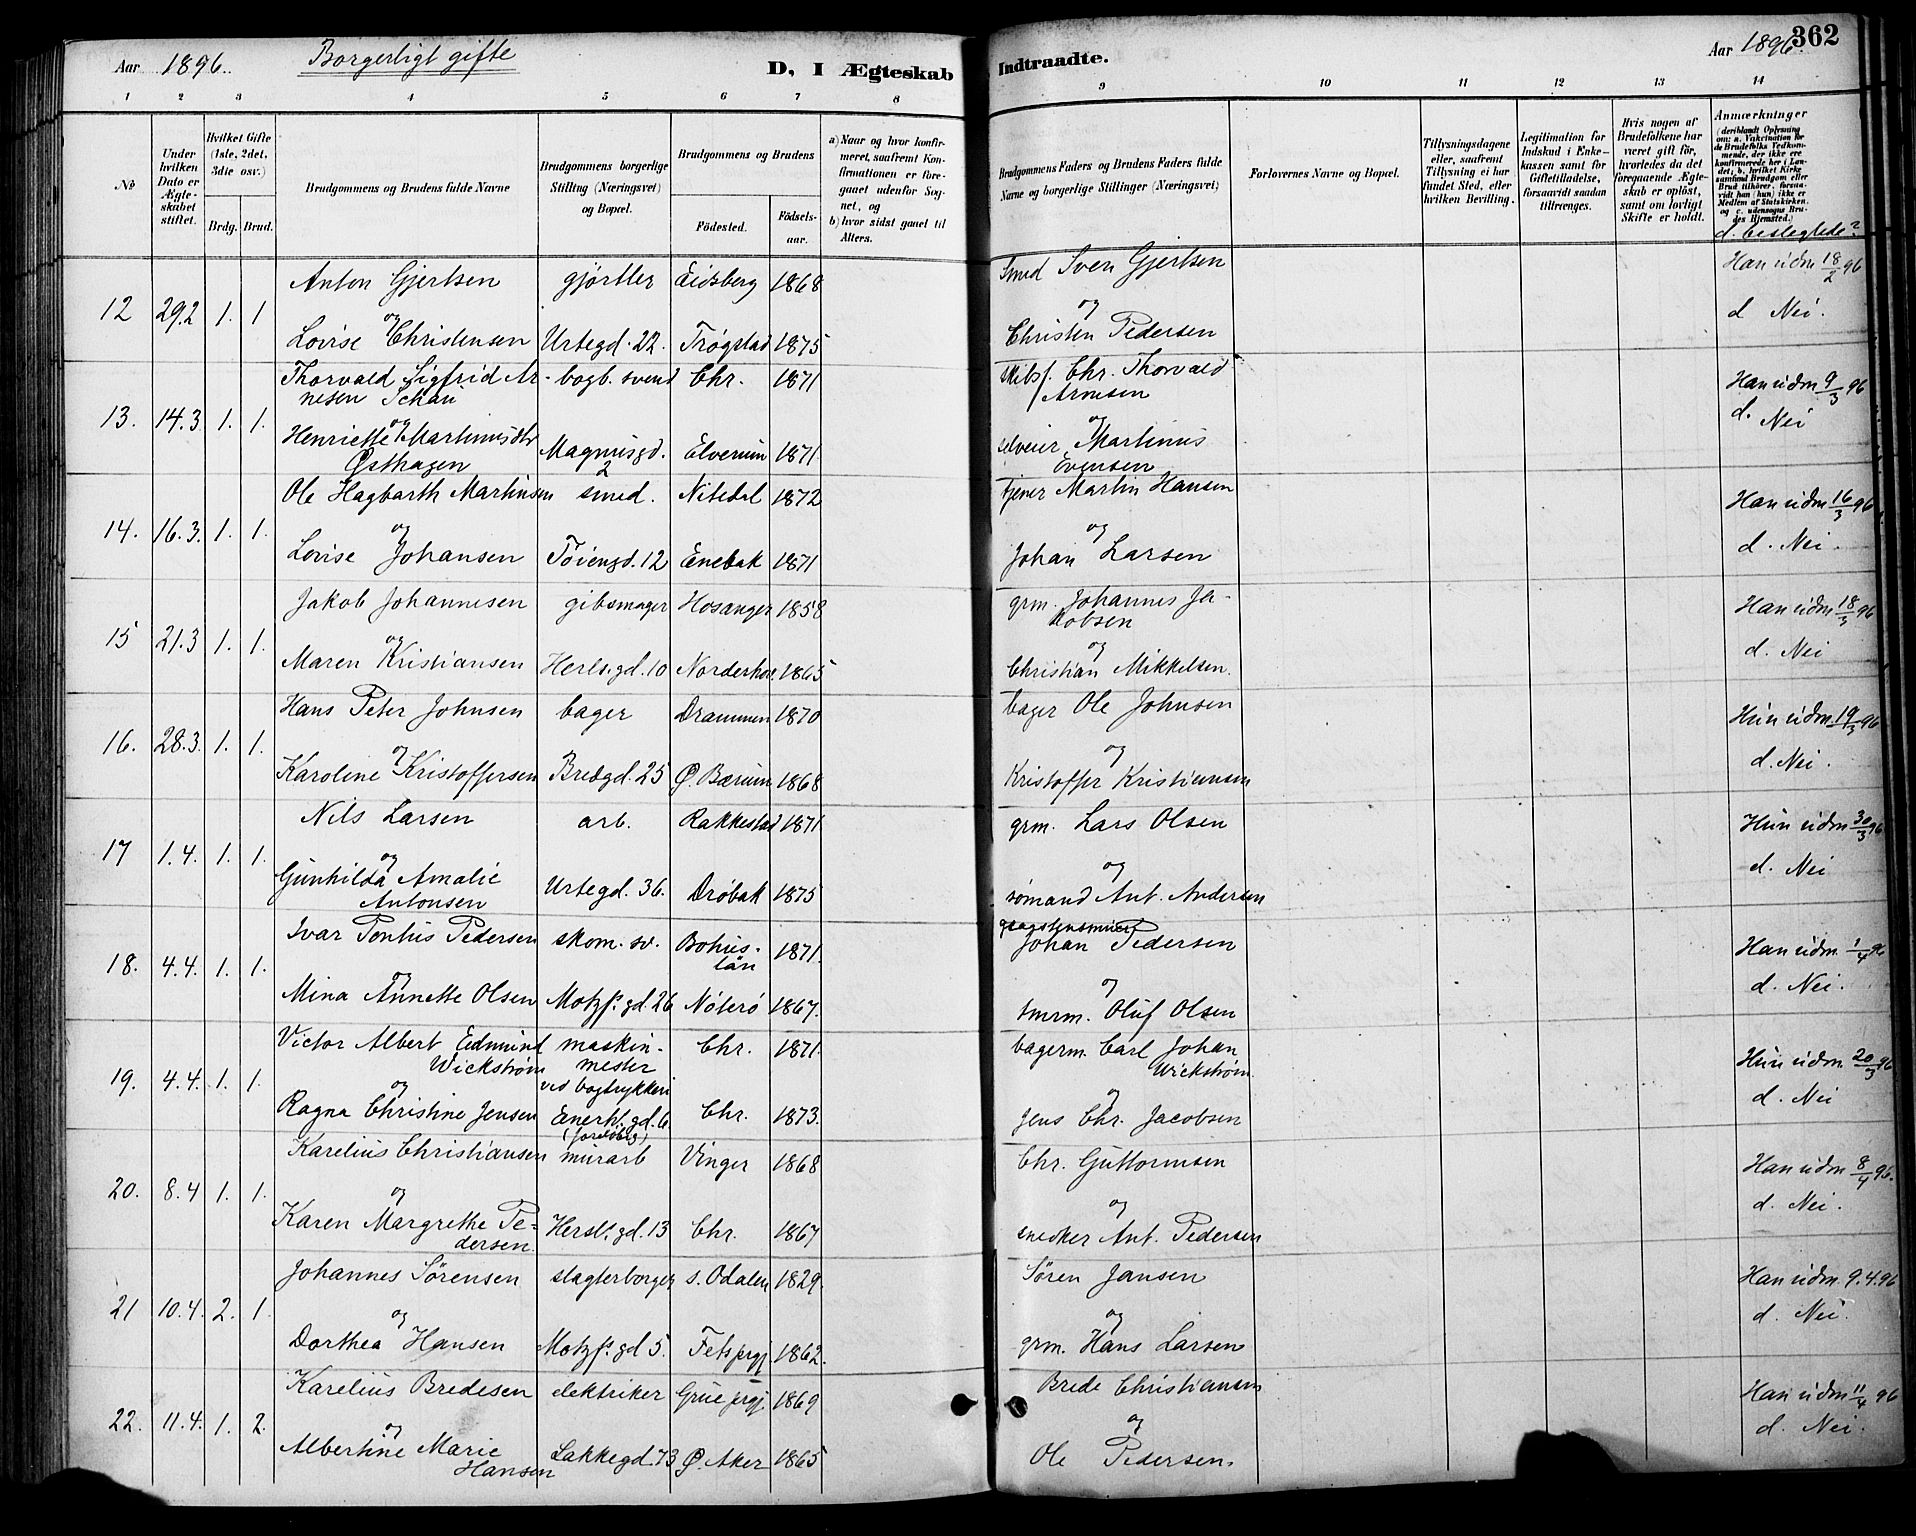 Aar 1896. Borgerligt gifte D, I Ægteskab Indtraadte. Aar 1896. 362
1 2 3 4 5 6 7 8 9 10 11 12 13 14
No
Under hvilken Dato er Ægteskabet stiftet.
Hvilket Gifte (1ste, 2det, 3die osv.)
Brdg. Brud.
Brudgommens og Brudens fulde Navne
Brudgommens borgerlige Stilling (Næringsvei) og Bopæl.
Brudgommens og Brudens
Födested. Födsels-aar.
a) Naar og hvor konfirmeret, saafremt Konfirmationen er foregaaet udenfor Sognet, og
b) hvor sidst gaaet til Alters.
Brudgommens Faders og Brudens Faders fulde Navne og borgerlige Stillinger (Næringsvei)
Forlovernes Navne og Bopæl.
Tillysningsdagene eller, saafremt Tillysning ei har fundet Sted, efter hvilken Bevilling.
Legitimation for Indskud i Enkekassen samt for Giftetilladelse, forsaavidt saadan tiltrænges.
Hvis nogen af Brudefolkene har været gift før, hvorledes da det foregaaende Ægteskab er opløst, samt om lovligt Skifte er holdt.
Anmærkninger
(deriblandt Oplysning om: a. Vakcination for de Brudefolks Vedkommende, der ikke ere konfirmerede her i Landet; b. hvilket Kirkesamfund Brudgom eller Brud tilhører, forsaavidt han (hun) ikke er Medlem af Statskirken. og c. udensogns Brudes Hjemsted.)
d. beslegtede?
Anton Gjertsen gjörtler Eidsberg 1868 Smed Sven Gjertsen Han udm 18/2 96
12 29.2 1. 1 og og d Nei.
Lovise Christensen Urtegd. 22. Trögstad 1875 Christen Pedersen
Thorvald Sigfrid Ar- bogb. svend Chr. 1871 skibsf. Chr. Thorvald Han udm 9/3 96
nesen Schau Arnesen
13. 14.3 1. 1. og og d. Nei
Henriette Martinusdtr Magnusgd. Elverum 1871 selveier Martinus
Østhagen 2 Evensen
Ole Hagbarth Martinsen smed. Nitedal 1872 tjener Martin Hansen Han udm 16/3 96
14. 16.3. 1. 1. og og d. Nei.
Lovise Johansen Töiengd. 12 Enebak 1871 Johan Larsen
Jakob Johannesen gibsmager Hosanger 1858 grm. Johannes Ja- Han udm 18/3 96
kobsen
15 21.3 1. 1. og og d. Nei
Maren Kristiansen Herls.gd. 10 Norderhov. 1865 Christian Mikkelsen.
Hans Peter Johnsen bager Drammen 1870 bager Ole Johnsen Hun udm. 19/3 96
16. 28.3. 1. 1. og og d. Nei.
Karoline Kristoffersen Bredgd. 25 Ø. Bærum 1868 Kristoffer Kristiansen
Nils Larsen arb. Rakkestad 1871 grm. Lars Olsen Hun udm 30/3 96
17 1.4. 1. 1. og og d. Nei
Gunhilda Amalie Urtegd. 36. Dröbak 1875 sömand Ant. Andersen
Antonsen
Ivar Pontus Pedersen skom. sv. Bohus- 1871. Johan Pedersen Han udm. 1/4 96
län
18. 4.4. 1. 1. og og d. Nei.
Mina Annette Olsen Motzf.gd. 26 Nöterö 1867. tmrm. Oluf Olsen
Victor Albert Edmund maskin- Chr. 1871. bagerm. Carl Johan Hun udm 20/3 96
Wickström mester Wickström.
19. 4.4. 1. 1. og ved bogtrykkeri og d. Nei
Ragna Christine Jensen Enerh.gd. 6 Chr. 1873. Jens Chr. Jacobsen
(foreløbig)
Karelius Christiansen murarb Vinger 1868 Chr. Guttormsen Han udm 8/4 96.
20. 8.4 1. 1. og og d. Nei.
Karen Margrethe Pe- Hersl.gd. 13 Chr. 1867 snedker Ant. Pedersen
dersen.
Johannes Sörensen slagterborger s. Odalen 1829. Sören Jansen Han udm. 9.4.96
21 10.4. 2. 1. og og d. Nei.
Dorthea Hansen Motzf.gd 5. Fets prgj. 1862. grm. Hans Larsen
Karelius Bredesen elektriker Grue prgj. 1869 Brede Christiansen Han udm 11/4 96
22. 11.4. 1. 2. og og d. Nei.
Albertine Marie Lakkegd. 73 Ø. Aker 1865 Ole Pedersen.
Hansen